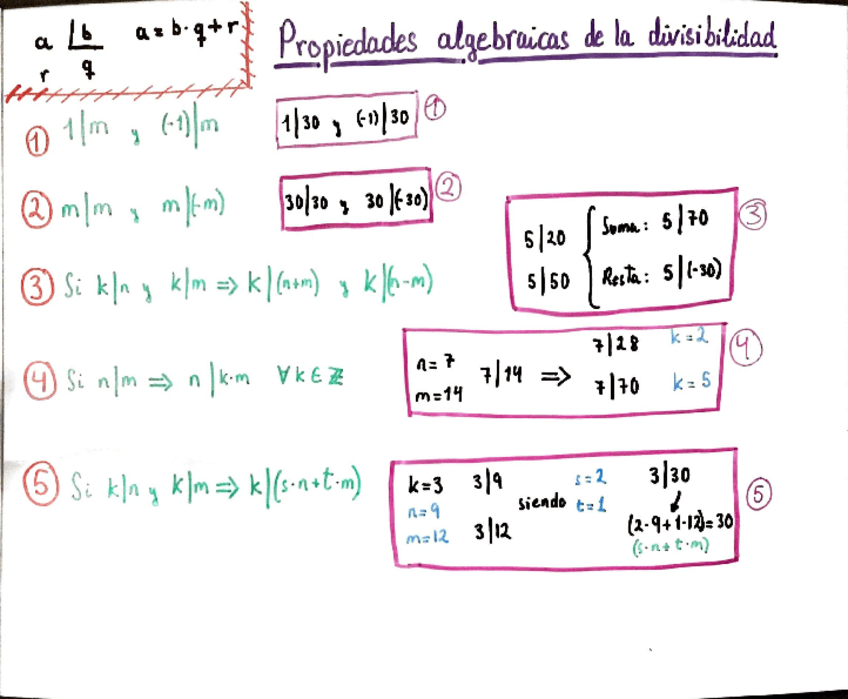 a | b   a = b·q + r
r   q
Propiedades algebraicas de la divisibilidad
① 1|m y (-1)|m
1|30 y (-1)|30 ①
② m|m y m|(-m)
30|30 y 30|(-30) ②
③ Si k|n y k|m ⇒ k|(n+m) y k|(n-m)
5|20
5|50
Suma: 5|70
Resta: 5|(-30)
③
④ Si n|m ⇒ n|k·m ∀k∈ℤ
n=7
m=14
7|14 ⇒
7|28 k=2
7|70 k=5
④
⑤ Si k|n y k|m ⇒ k|(s·n+t·m)
k=3 3|9
n=9
m=12 3|12
siendo
s=2
t=1
3|30
↓
(2·9+1·12)=30
(s·n+t·m)
⑤